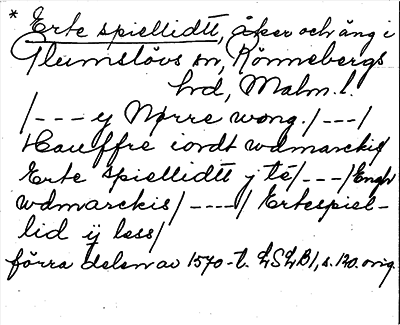 * Erte spiellidtt, åker och äng i
Glumslövs sn, Rönnebergs
hd, Malm. l.
/--- ij Nørre wong. /---/
Hauffre iordt wdmarckis/
Erte spiellidtt j té/---/Engh
wdmarckis/----/ Ertespiel-
lid ij less/
förra delen av 1570-t. LSLB1, s. 120. orig.